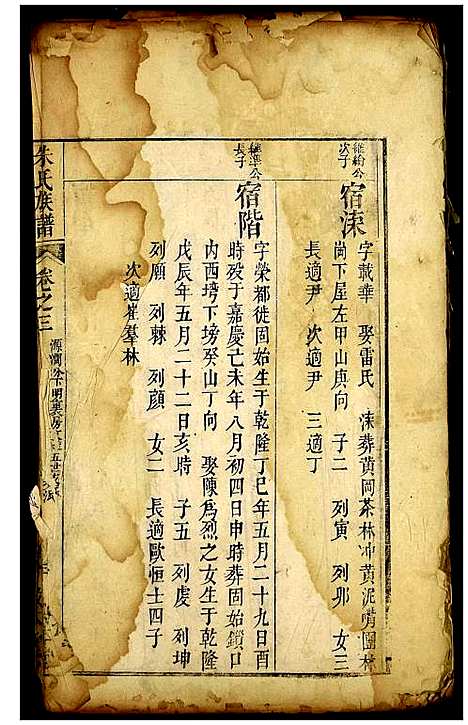 維綸公次子
宿涑 字載華 娶雷氏 涑葬黃岡茶林冲黃泥嘴團林
崗下屋左甲山庚向 子二 列寅 列夘 女三
長適尹 次適尹 三適丁
維準公長子
宿階 字榮都徙固始生于乾隆丁巳年五月二十九日酉
時殁于嘉慶己未年八月初四日申時葬固始鎖口
内西塆下塝癸山丁向 娶陳爲烈之女生于乾隆
戊辰年五月二十二日亥時 子五 列虔 列坤
列願 列棘 列顔 女二 長適歐恒士四子
次適崔羣林
朱氏族譜 卷之三